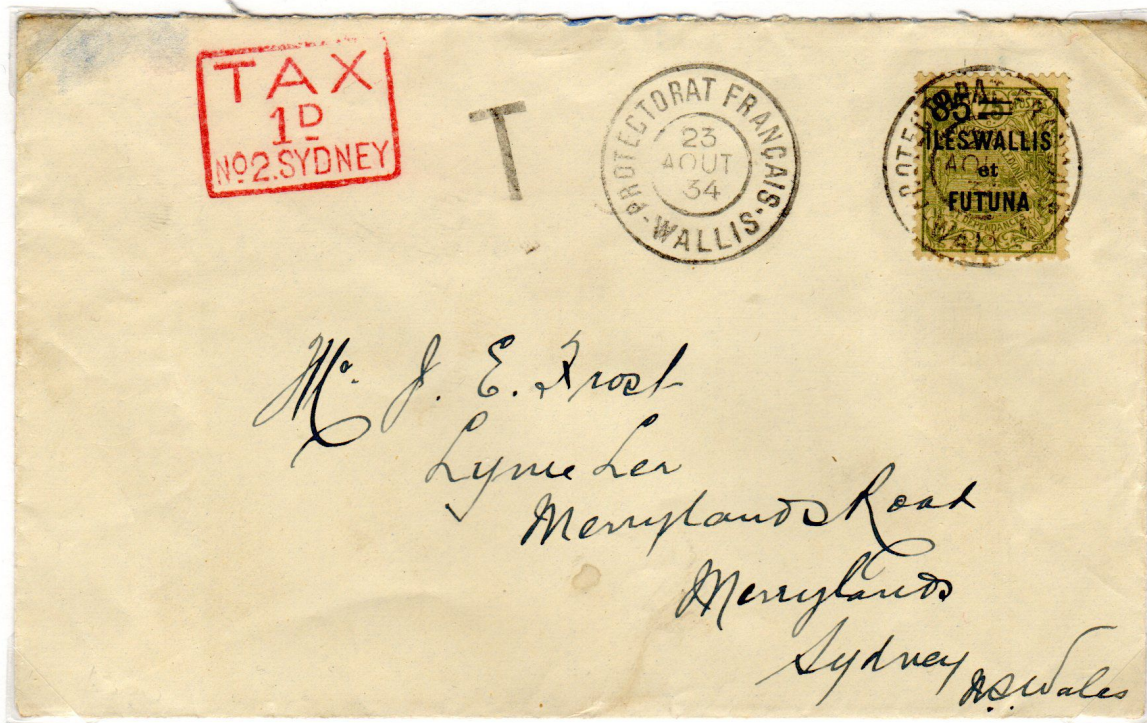 TAX
1D
No2.SYDNEY
T
PROTECTORAT FRANÇAIS
23
AOUT
34
-WALLIS-
85 25
ÎLES WALLIS
et
FUTUNA
Mr. J. E. Frost
Lyme Lea
Merrylands Road
Merrylands
Sydney
N.S.Wales